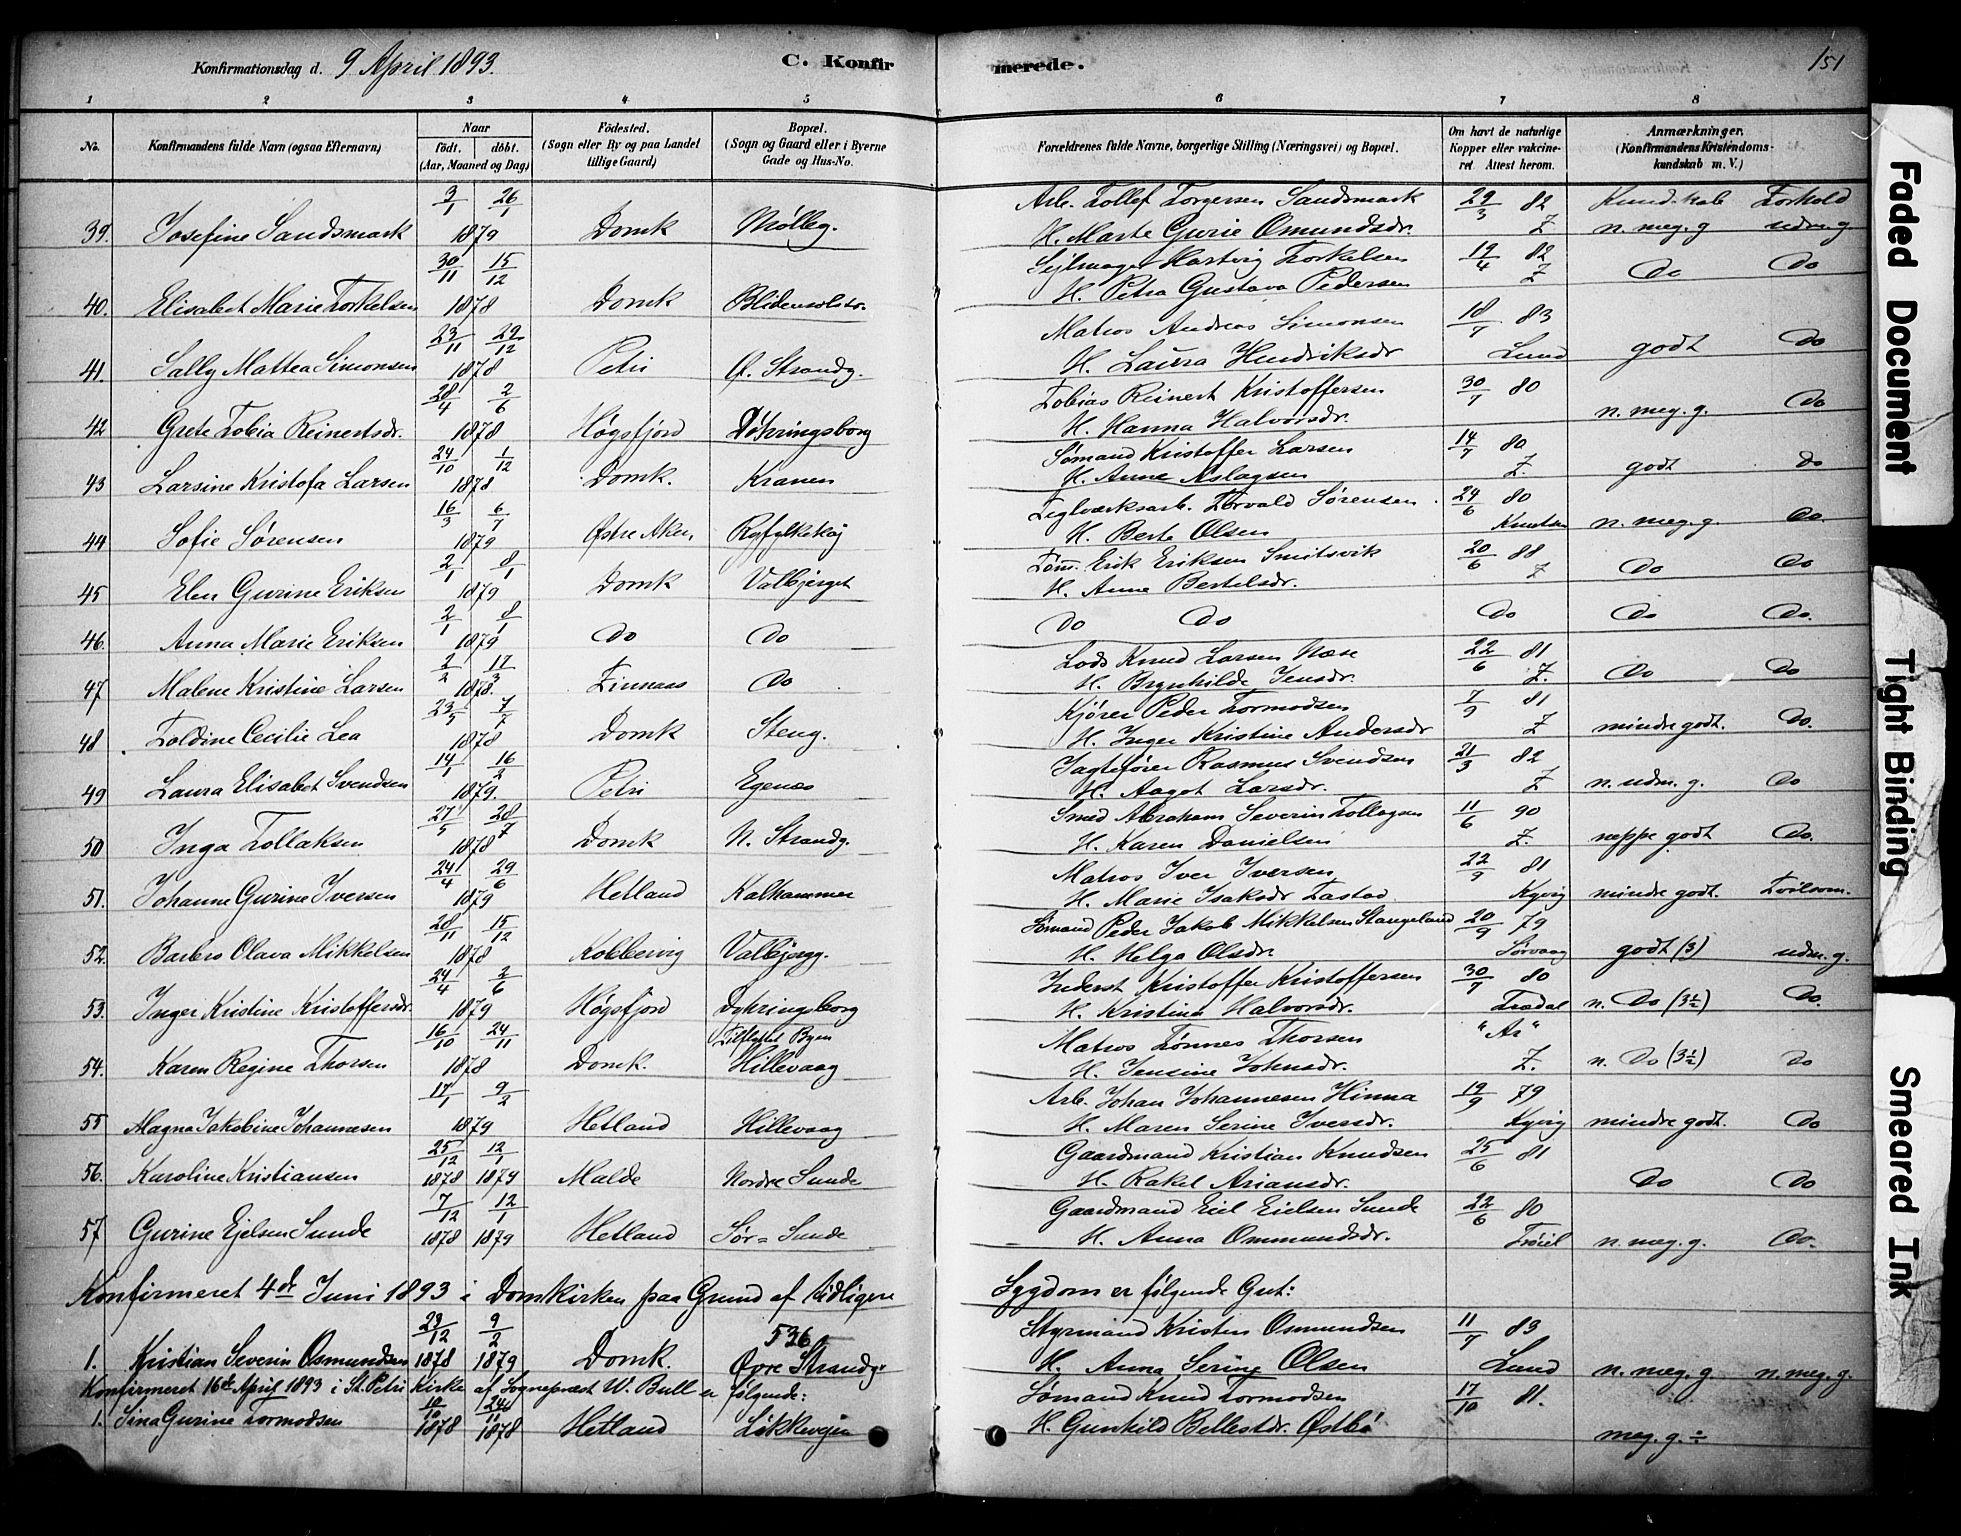 Konfirmationsdag d. 9 April 1893. C. Konfirmerede. 151
1 2 3 4 5 6 7 8
No. Konfirmandens fulde Navn (ogsaa Efternavn) Naar født. døbt. (Aar, Maaned og Dag) Fødested. (Sogn eller By og paa Landet tillige Gaard) Bopæl. (Sogn og Gaard eller i Byerne Gade og Hus-No. Forældrenes fulde Navne, borgerlige Stilling (Næringsvei) og Bopæl. Om havt de naturlige Kopper eller vakcineret Attest herom. Anmærkninger. (Konfirmandens Kristendomskundskab m. V.)
3/1 26/1 Arb. Tollef Torgersen Sandsmark 29/3 82 Kundskab Forhold
39. Josefine Sandsmark 1879 Domk Mølleg. H. Marte Gurie Omundsdr. Z n. meg. g udm. g.
30/11 15/12 Sejlmager Hartvig Torkelsen 19/4 82
40. Elisabet Marie Torkelsen 1878 Domk Blidensolstr. H. Petra Gustava Pedersen Z Do Do
23/11 29/12 Matros Andreas Simonsen 18/7 83
41. Sally Mattea Simonsen 1878 Petri Ø. Strandg. H. Laura Hendriksdr Lund godt Do
28/4 2/6 Tobias Reinert Kristoffersen 30/7 80
42 Grete Tobia Reinertsdr. 1878 Høgsfjord Dykringsborg H. Hanna Halvorsdr. n. meg. g. Do
24/10 1/12 Sømand Kristoffer Larsen 14/7 80
43 Larsine Kristofa Larsen 1878 Domk. Kranen H. Anne Aslagsen Z. godt Do
16/3 6/7 Teglværksarb. Torvald Sørensen 24/6 80
44 Sofie Sørensen 1879 Østre Aker, Ryfylkekaj H. Berte Olsen Knutsen n. meg. g. Do.
2/1 8/1 Tøm. Erik Eriksen Smitsvik 20/6 88
45 Elen Gurine Eriksen 1879 Domk Valbjerget H. Anne Bertelsdr. Z Do Do
2/1 8/1
46. Anna Marie Eriksen 1879 Do Do Do Do Do Do Do.
2/2 17/3 Lods Knud Larsen Næse 22/6 81
47 Malene Kristine Larsen 1878. Finnaas Do H. Brynhilde Jensdr. Z. Do Do
23/5 7/7 Kjører Peder Tormodsen 7/9 81
48 Toldine Cecilie Lea 1878 Domk Steng. H. Inger Kristine Andersdr Z mindre godt. Do.
14/1 16/2 Jagtefører Rasmus Svendsen 21/3 82
49 Laura Elisabet Svendsen 1879. Petri Egenes H. Aagot Larsdr. Z n. udm. g. Do
27/5 28/7 Smed Abraham Severin Tollagsen 11/6 90
50 Inga Tollaksen 1878 Domk N. Strandg. H. Karen Danielsen Z. neppe godt Do.
24/4 29/6 Matros Iver Iversen 22/9 81
51. Johanne Gurine Iversen 1879 Hetland Kalhammer H. Marie Isaksdr Tastad Kyvig mindre godt. Tvilsom.
28/11 15/12 Sømand Peder Jakob Mikkelsen Stangeland 20/9 79
52. Barbro Olava Mikkelsen 1878 Kobbervig Valbjergg. H. Helga Olsdr Sørvaag godt (3) udm. g.
24/4 2/6 Inderst Kristoffer Kristoffersen 30/7 80
53. Inger Kristine Kristoffersdr. 1879 Høgsfjord Dykringsborg H. Kristina Halvorsdr. Tradal n. Do (3½) Do.
16/10 24/11 Tilflyttet Byen Matros Tønnes Thorsen "Ar"
54. Karen Regine Thorsen 1878 Domk. Hillevaag H. Jensine Johnsdr. Z. n. Do (3½) Do
17/1 9/2 Arb. Johan Johannesen Hinna 19/9 79
55 Magna Jakobine Johannesen 1879 Hetland Hillevaag H. Maren Serine Iversdr. Kyvig mindre godt. Do
25/12 12/1 Gaardmand Kristian Knudsen 25/6 81
56. Karoline Kristiansen 1878 1879 Malde Nordre Sunde H. Rakel Ariansdr. Do Do
7/12 12/1 Gaardmand Eiel Eielsen Sunde 22/6 80
57 Gurine Ejelsen Sunde 1878 1879 Hetland Sør= Sunde H. Anna Ommundsdr. Frøiel n. meg. g. Do.
Konfirmeret 4de Juni 1893 i Domkirken paa Grund af tidligere Sygdom er følgende Gut:
29/12 9/2 536 Styrmand Kristen Osmundsen 11/7 83
1. Kristian Severin Osmundsen 1878 1879 Domk. Øvre Strandg. H. Anna Serine Olsen Lund n. meg. g n. meg. g.
Konfirmeret 16de April 1893 i St. Petri Kirke af Sognepræst W. Bull er følgende: Sømand Knud Tormodsen 17/10 81.
1. Sina Gurine Tormodsen 10/10 1878 24/11 1878 Hetland Løkkevejen H. Gunhild Bellestdr. Østbø meg. g. ÷
Faded Document
Tight Binding
Smeared Ink